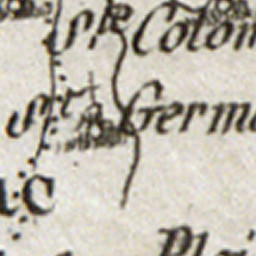 Ste Colom
St Germa
ac
Plai